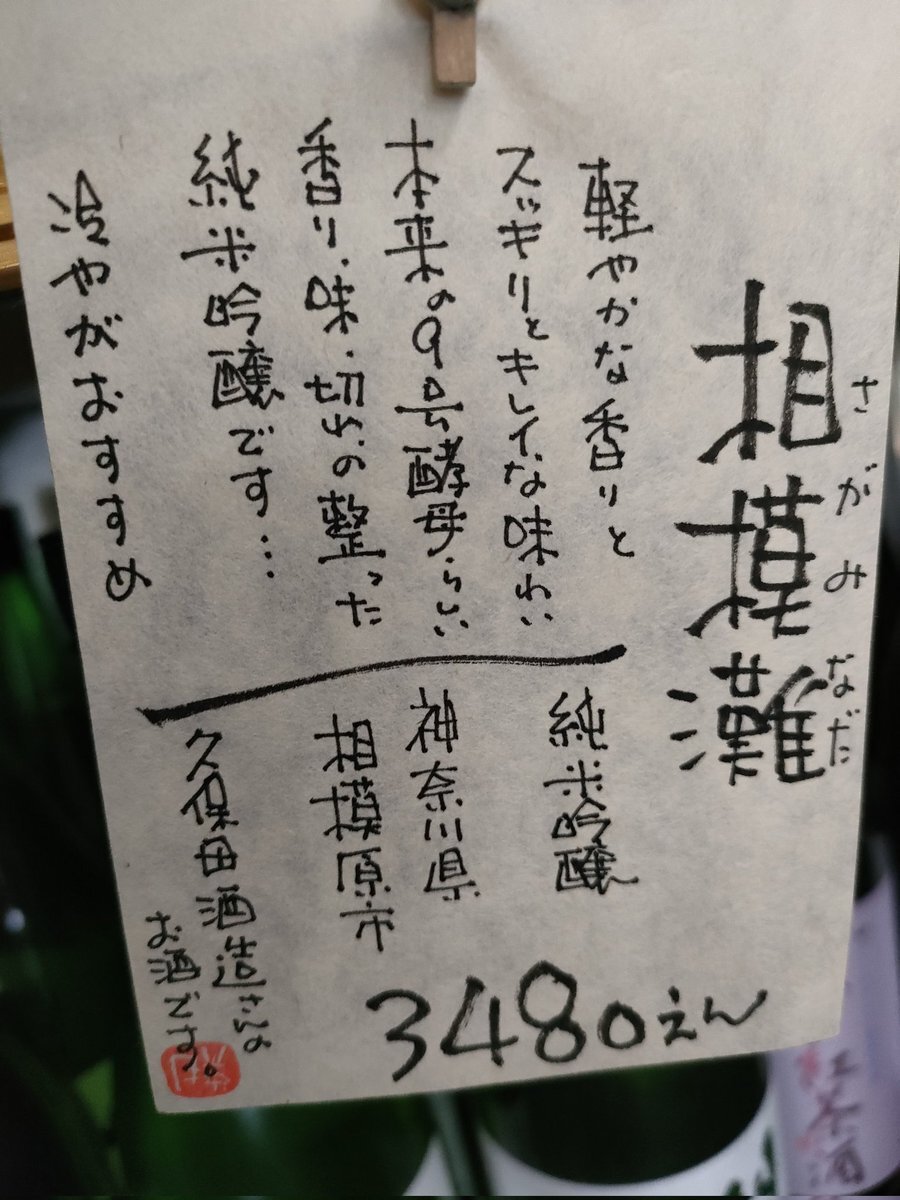 相模灘
さがみなだ
軽やかな香りと
スッキリとキレイな味わい
本来の9号酵母らしい
香り・味・切れの整った
純米吟醸です…
冷やがおすすめ
純米吟醸
神奈川県
相模原市
久保田酒造さんの
お酒です。
3480えん
紅茶酒